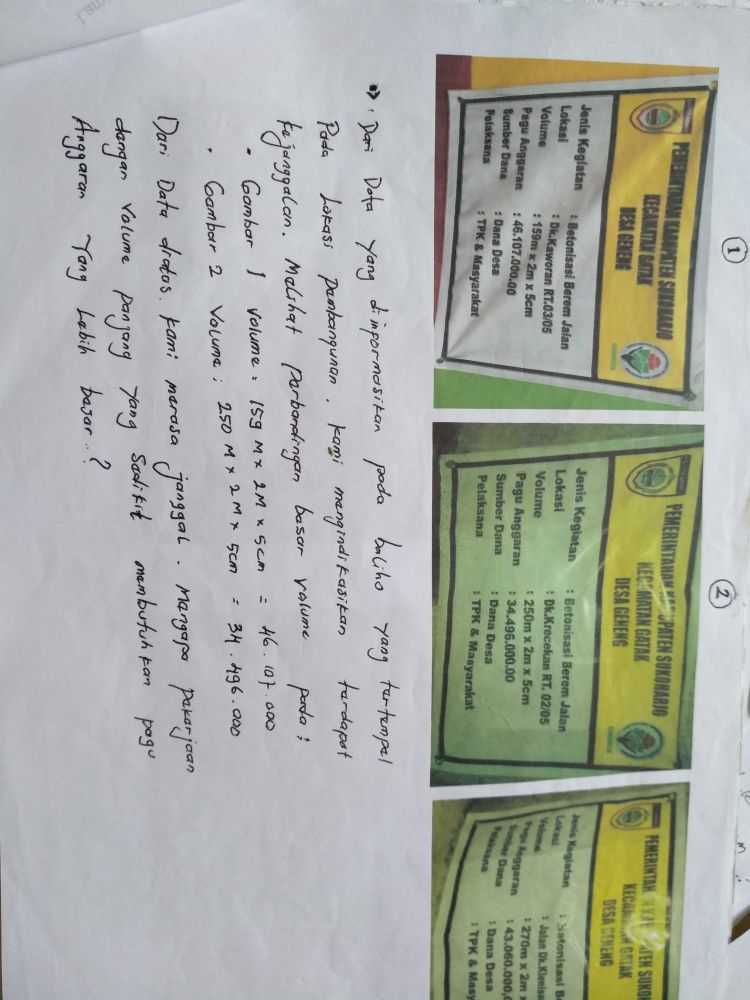 1
PEMERINTAHAN KABUPATEN SUKOHARJO
KECAMATAN GATAK
DESA GENENG
Jenis Kegiatan : Betonisasi Berem Jalan
Lokasi : Dk.Kaworan RT.03/05
Volume : 159m x 2m x 5cm
Pagu Anggaran : 46.107.000.00
Sumber Dana : Dana Desa
Pelaksana : TPK & Masyarakat
2
PEMERINTAHAN KABUPATEN SUKOHARJO
KECAMATAN GATAK
DESA GENENG
Jenis Kegiatan : Betonisasi Berem Jalan
Lokasi : Dk.Krecekan RT. 02/05
Volume : 250m x 2m x 5cm
Pagu Anggaran : 34.496.000.00
Sumber Dana : Dana Desa
Pelaksana : TPK & Masyarakat
KECAMATAN GATAK
DESA GENENG
Jenis Kegiatan : Betonisasi B
Lokasi : Jalan
Volume : 270m x 2m x
Pagu Anggaran : 43.060.000,0
Sumber Dana : Dana Desa
Pelaksana : TPK & Masy
Dari Data yang diinformasikan pada baliho yang tertempel
Pada Lokasi pembangunan. Kami mengindikasikan terdapat
Kejanggalan. Melihat perbandingan besar volume pada :
• Gambar 1 Volume : 159 M x 2M x 5cm = 46.107.000
• Gambar 2 Volume : 250 M x 2 M x 5cm = 34.496.000
Dari Data diatas. Kami merasa janggal. Mengapa pekerjaan
dengan Volume panjang yang Sedikit membutuhkan pagu
Anggaran Yang Lebih besar..?